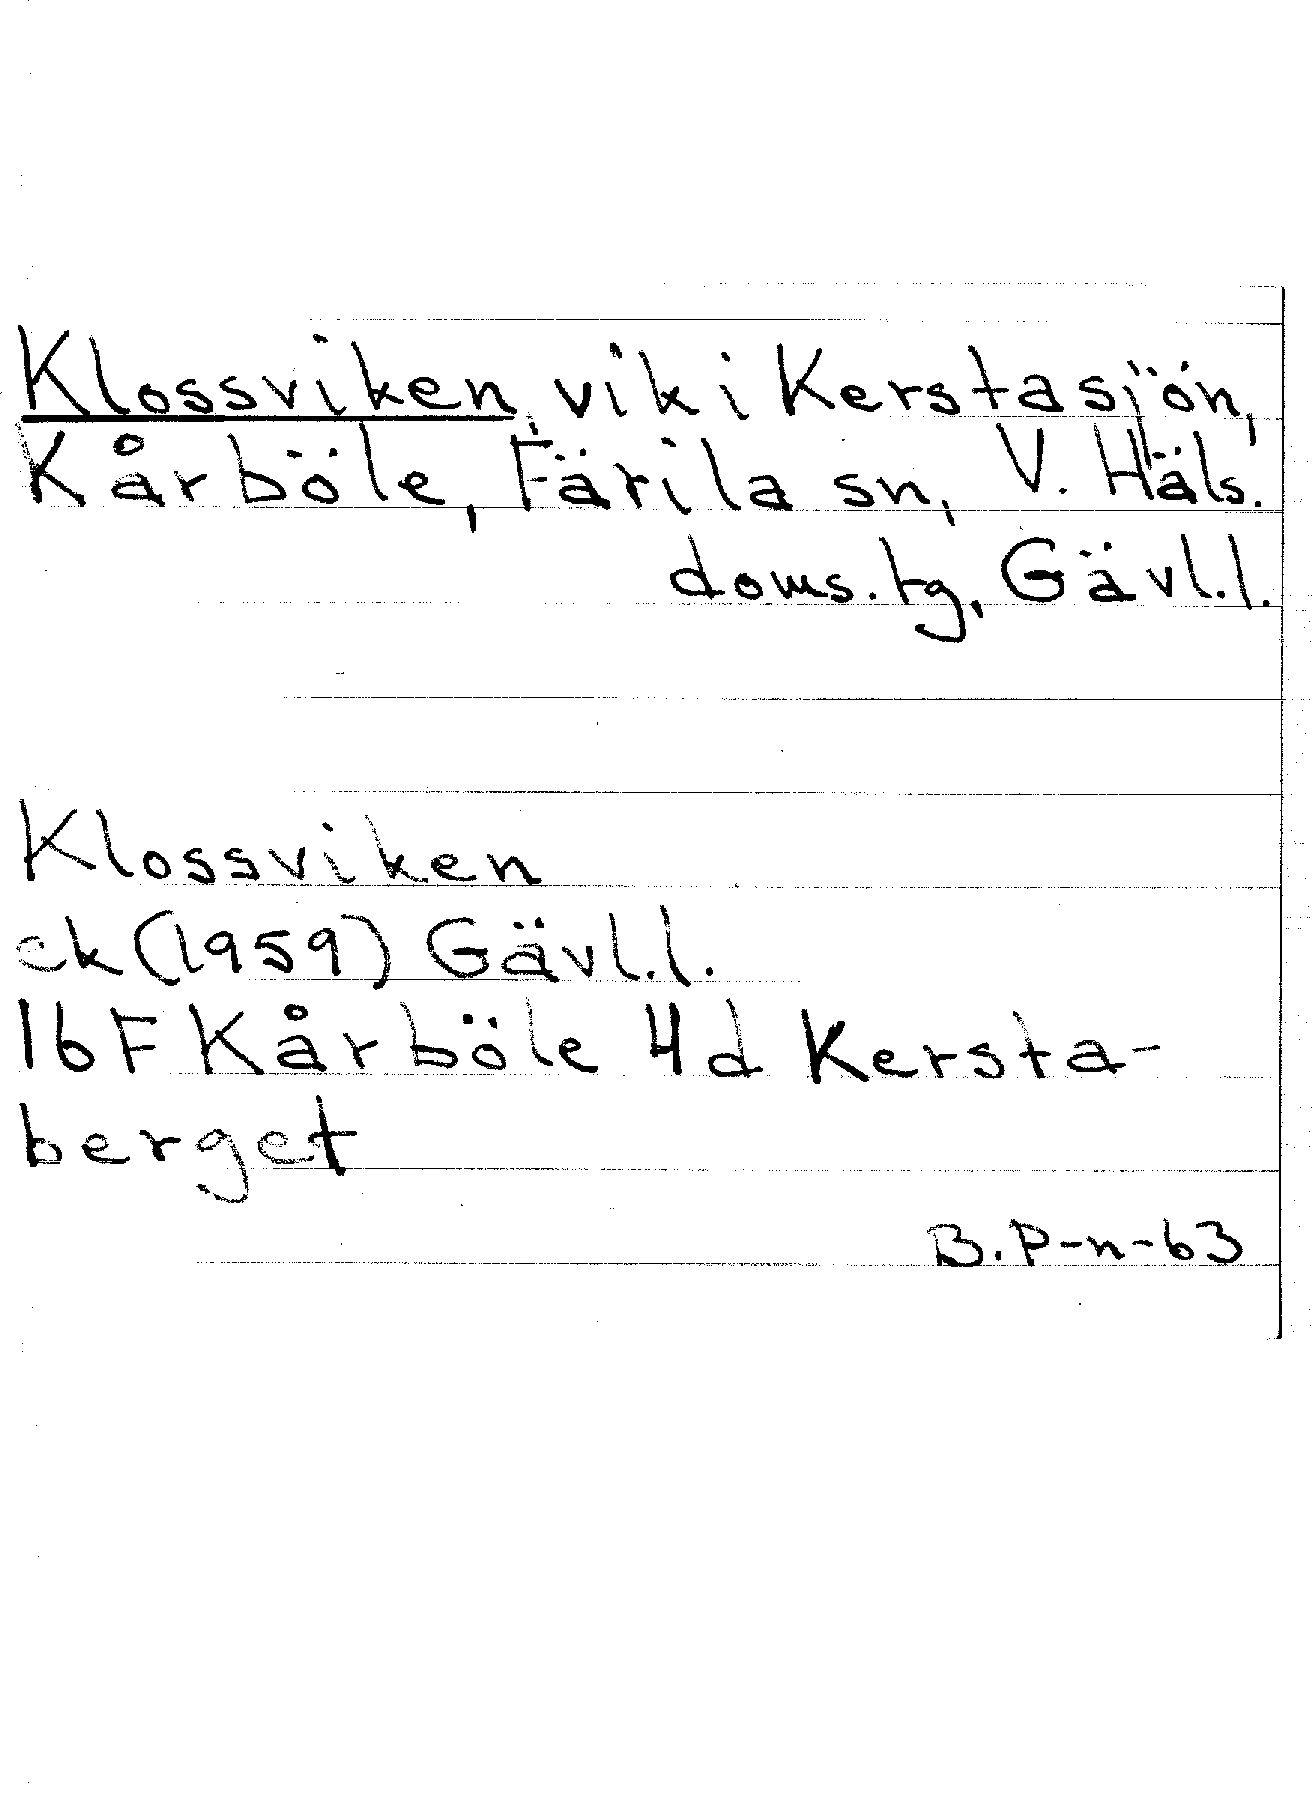 Klossviken, vik i Kerstasjön,
Kårböle, Färila sn, V. Häls.
doms. tg, Gävl.l.
Klossviken
ek (1959) Gävl.l.
16F Kårböle 4d Kersta-
berget
B.P-n-63